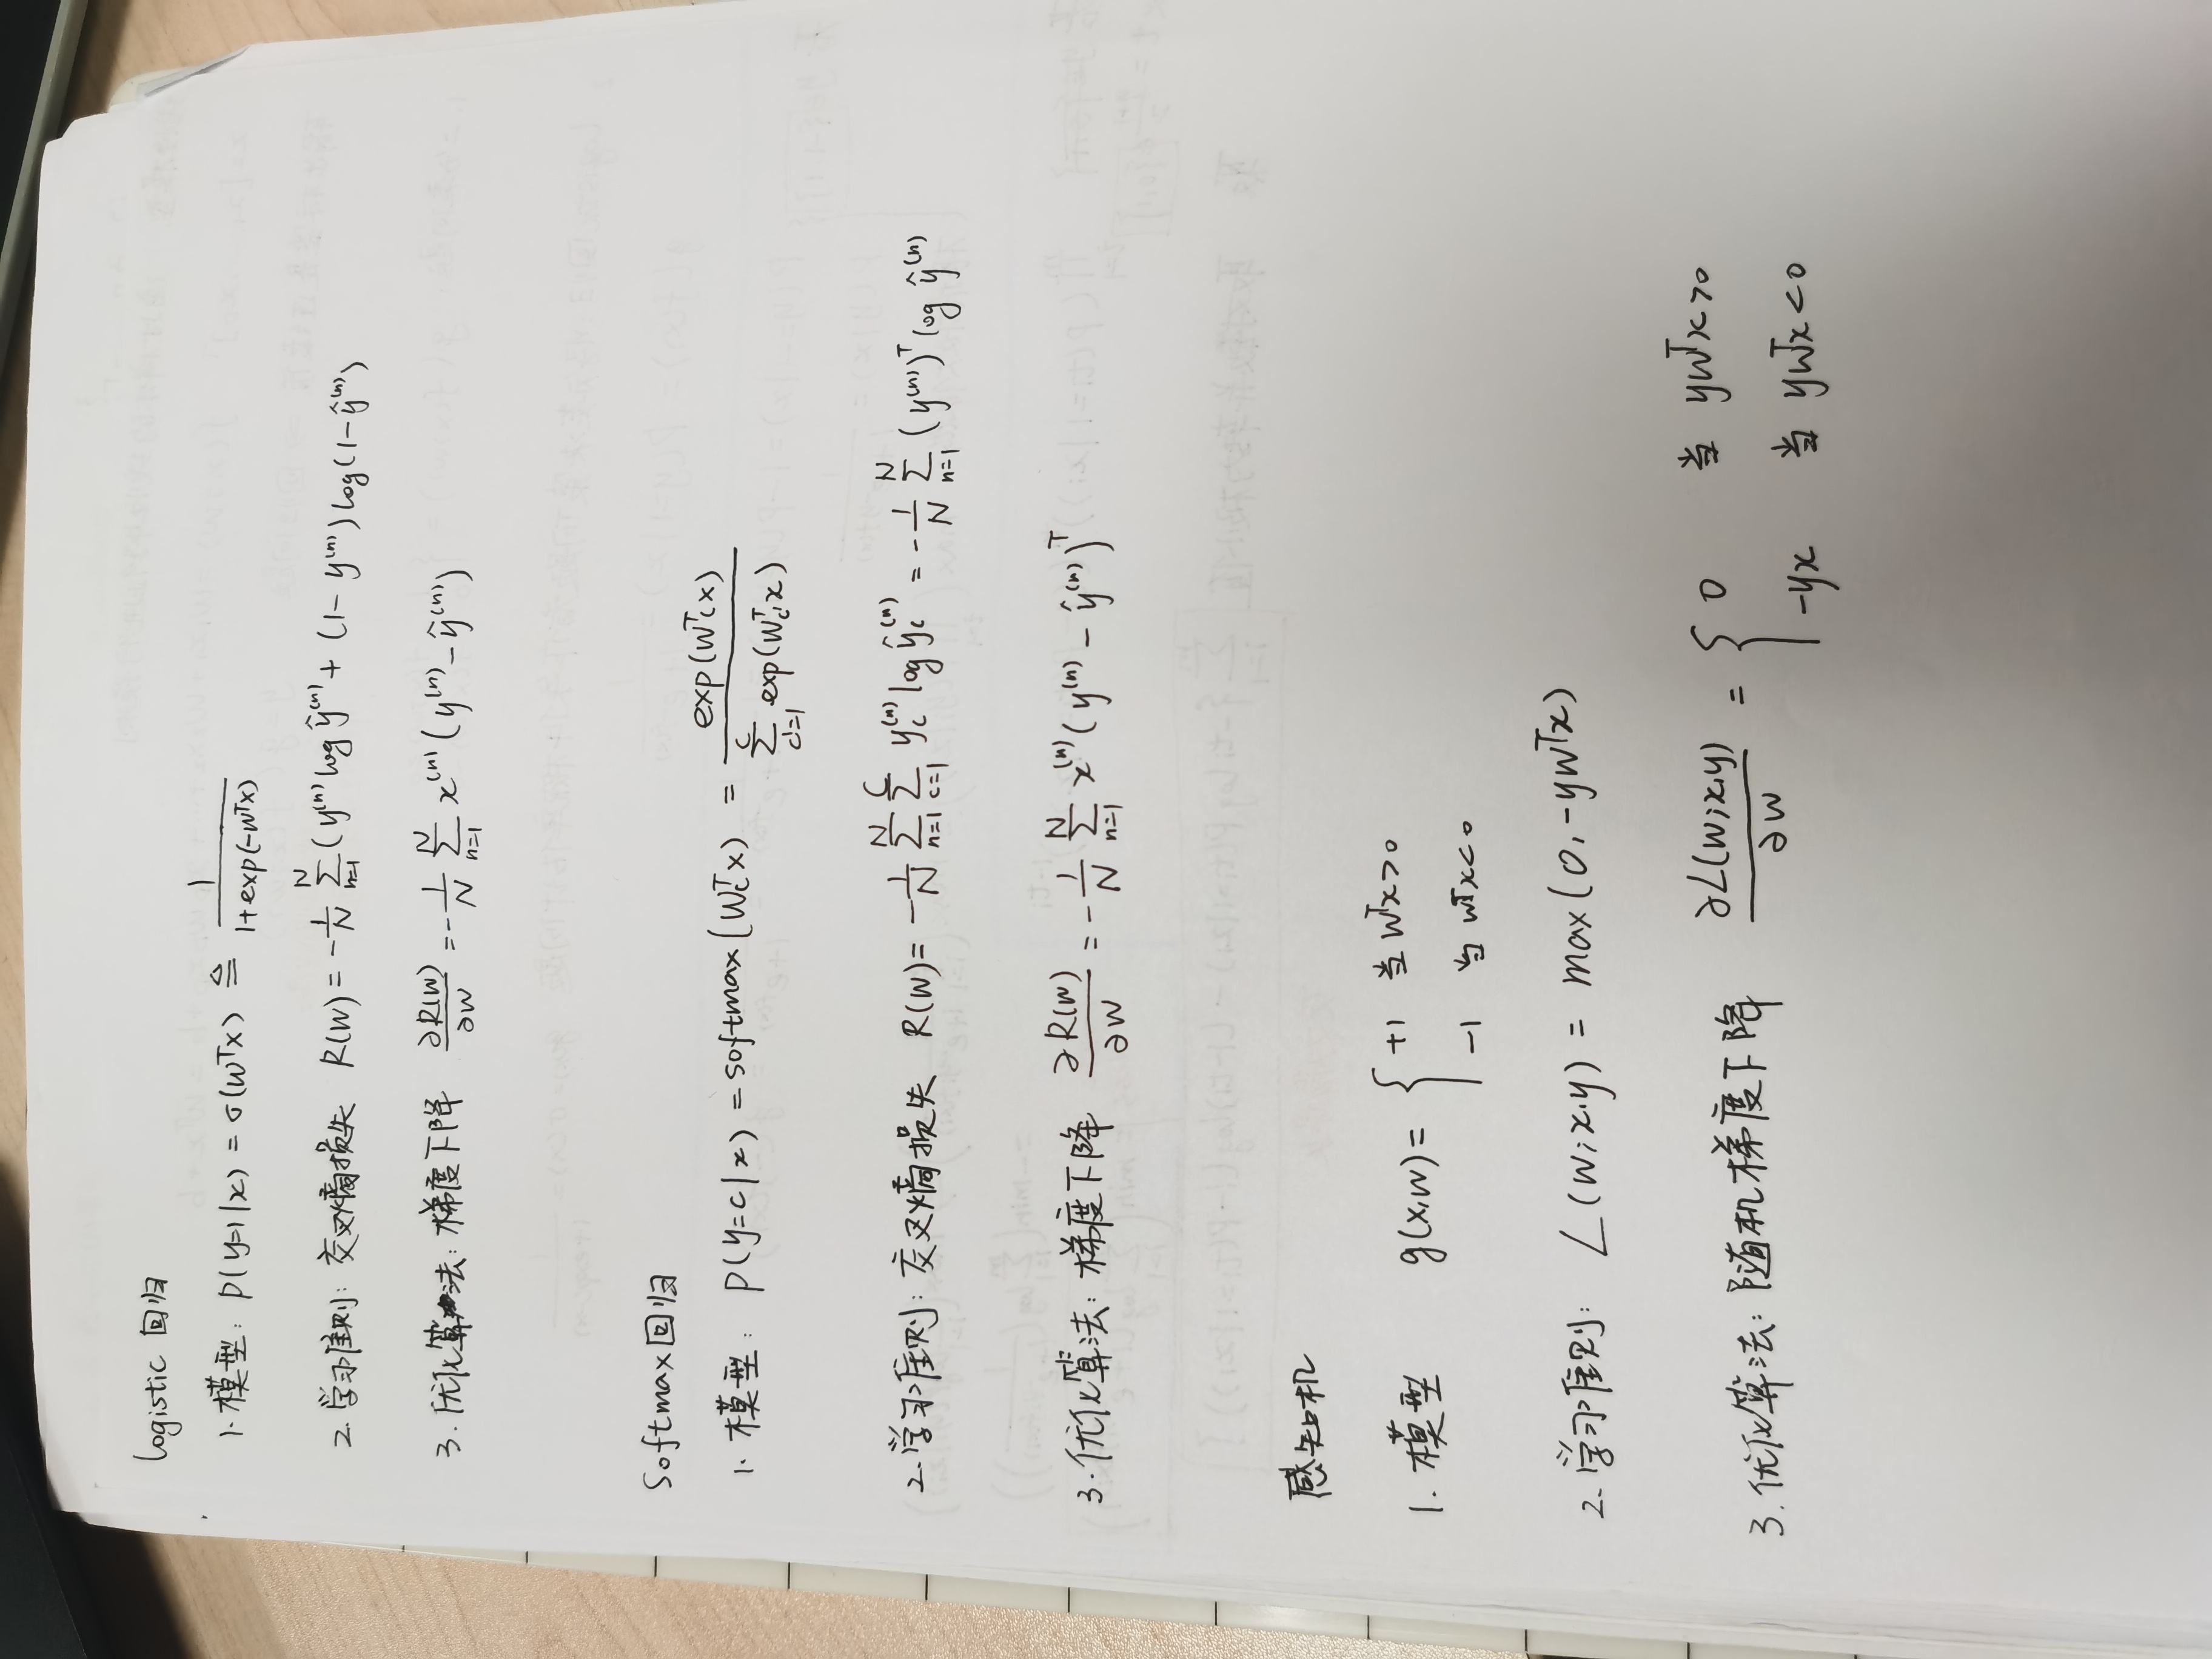 Logistic 回归
1. 模型: P(y=1|x) = σ(wᵀx) ≜ 1/(1+exp(-wᵀx))
2. 学习准则: 交叉熵损失 R(w) = -1/N ∑_{n=1}^{N} (y⁽ⁿ⁾ log ŷ⁽ⁿ⁾ + (1-y⁽ⁿ⁾) log(1-ŷ⁽ⁿ⁾)
3. 优化算法: 梯度下降 ∂R(w)/∂w = -1/N ∑_{n=1}^{N} x⁽ⁿ⁾(y⁽ⁿ⁾-ŷ⁽ⁿ⁾)
Softmax回归
1. 模型: P(y=c|x) = softmax[w_cᵀx) = exp(w_cᵀx)/∑_{c'=1}^{C} exp(w_{c'}ᵀx)
2. 学习准则: 交叉熵损失 R(w) = -1/N ∑_{n=1}^{N} ∑_{c=1}^{C} y_c⁽ⁿ⁾ log ŷ_c⁽ⁿ⁾ = -1/N ∑_{n=1}^{N} (y⁽ⁿ⁾)ᵀ log ŷ⁽ⁿ⁾
3. 优化算法: 梯度下降 ∂R(w)/∂w = -1/N ∑_{n=1}^{N} x⁽ⁿ⁾(y⁽ⁿ⁾ - ŷ⁽ⁿ⁾)ᵀ
感知机
1. 模型 g(x,w) = { +1 当 wᵀx>0
-1 当 wᵀx<0
2. 学习准则: L(w;x,y) = max(0, -ywᵀx)
3. 优化算法: 随机梯度下降 ∂L(w;x,y)/∂w = { 0 当 ywᵀx>0
-yx 当 ywᵀx<0